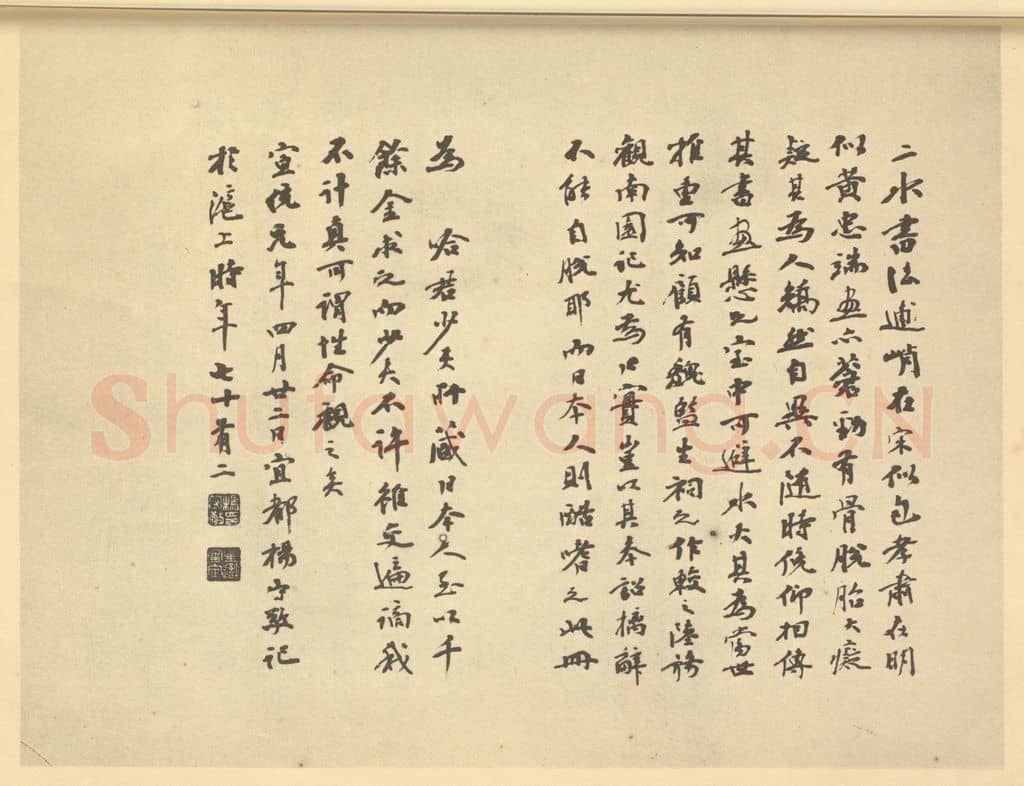 二水書法逋峭在宋似包孝肅在明
似黃忠端畫亦蒼勁有骨脫胎大癡
疑其為人矯然自異不隨時俛仰相傳
其書畫懸之室中可避水火其為當世
推重可知顧有魏監生祠之作較之陸務
觀南園記尤為口實豈以其奉詔摛辭
不能自脫耶而日本人則酷嗜之此冊
為 哈君少夫所藏日本人至以千
餘金求之而少夫不許雅文遍謫我
不計真可謂性命視之矣
宣統元年四月廿二日宜都楊守敬記
於滬上時年七十有二
Shufawang.CN